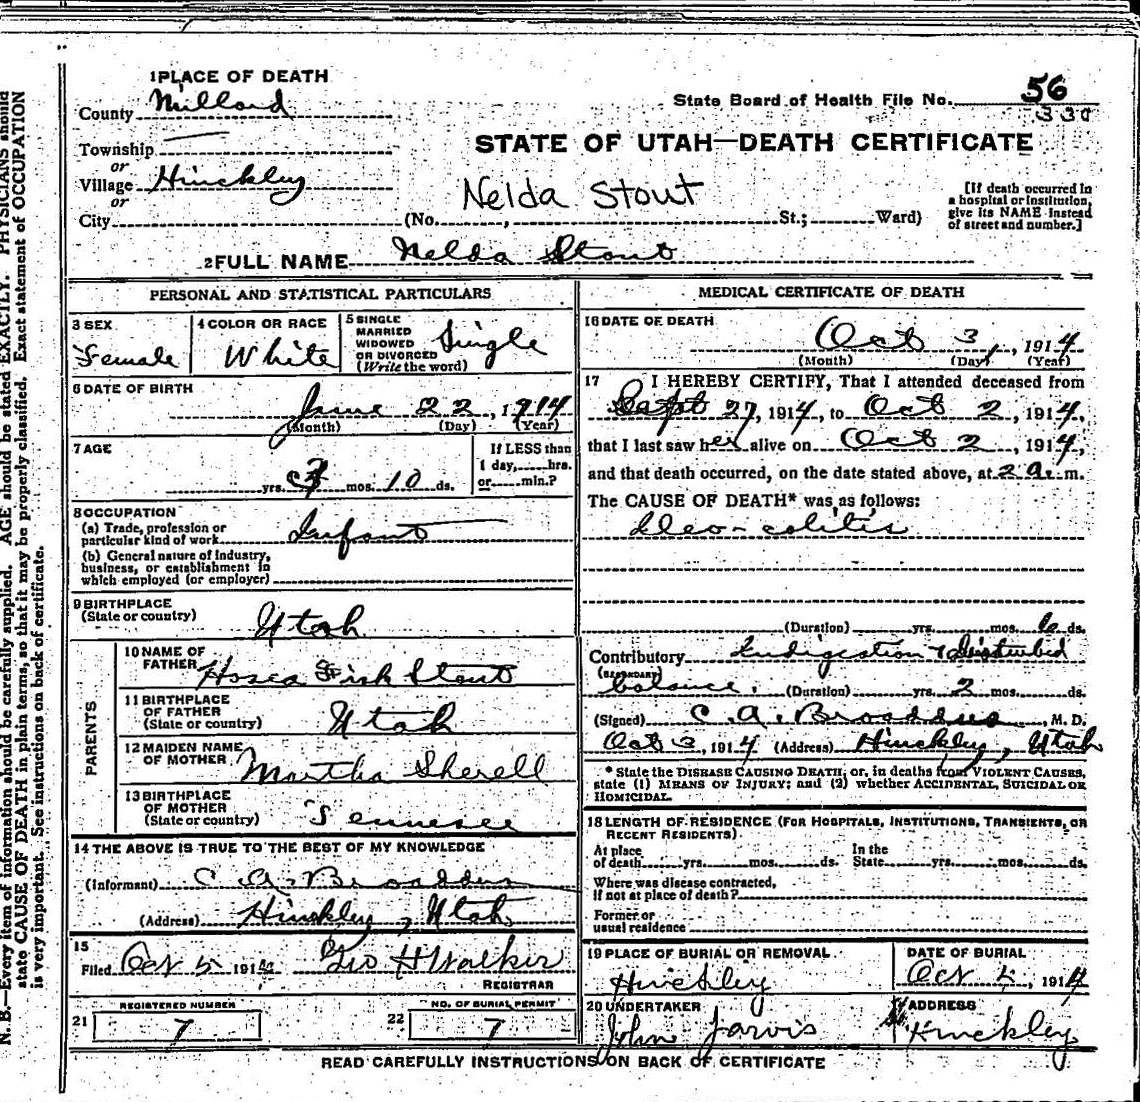 1 PLACE OF DEATH
County Millard
State Board of Health File No. 56
330
Township
or
Village Hinckley
or
City
STATE OF UTAH—DEATH CERTIFICATE
Nelda Stout
(No. , St.; Ward)
[If death occurred in
a hospital or institution,
give its NAME instead
of street and number.]
2 FULL NAME Nelda Stout
PERSONAL AND STATISTICAL PARTICULARS
3 SEX
Female
4 COLOR OR RACE
White
5 SINGLE
MARRIED
WIDOWED
OR DIVORCED
(Write the word)
Single
6 DATE OF BIRTH
June 22, 1914
(Month) (Day) (Year)
7 AGE
yrs. 3 mos. 10 ds.
If LESS than
1 day, hrs.
or min.?
8 OCCUPATION
(a) Trade, profession or
particular kind of work Infant
(b) General nature of industry,
business, or establishment in
which employed (or employer)
9 BIRTHPLACE
(State or country)
Utah
PARENTS
10 NAME OF
FATHER Hosea Fisk Stout
11 BIRTHPLACE
OF FATHER
(State or country) Utah
12 MAIDEN NAME
OF MOTHER Martha Sherell
13 BIRTHPLACE
OF MOTHER
(State or country) Tennesee
14 THE ABOVE IS TRUE TO THE BEST OF MY KNOWLEDGE
(Informant) C. A. Broaddus
(Address) Hinckley, Utah
15
Filed Oct 5 1914 Geo H Walker
REGISTRAR
REGISTERED NUMBER
21 7
NO. OF BURIAL PERMIT
22 7
MEDICAL CERTIFICATE OF DEATH
16 DATE OF DEATH
Oct 3, 1914
(Month) (Day) (Year)
17 I HEREBY CERTIFY, That I attended deceased from
Sept 27, 1914, to Oct 2, 1914,
that I last saw her alive on Oct 2, 1914,
and that death occurred, on the date stated above, at 2 a. m.
The CAUSE OF DEATH* was as follows:
Ileo-colitis
(Duration) yrs. mos. 6 ds.
Contributory Indigestion & Disturbed
(SECONDARY)
balance. (Duration) yrs. 2 mos. ds.
(Signed) C. A. Broaddus, M. D.
Oct 3, 1914 (Address) Hinckley, Utah
* State the DISEASE CAUSING DEATH; or, in deaths from VIOLENT CAUSES,
state (1) MEANS OF INJURY; and (2) whether ACCIDENTAL, SUICIDAL OR
HOMICIDAL.
18 LENGTH OF RESIDENCE (FOR HOSPITALS, INSTITUTIONS, TRANSIENTS, OR
RECENT RESIDENTS)
At place
of death yrs. mos. ds.
In the
State yrs. mos. ds.
Where was disease contracted,
if not at place of death?
Former or
usual residence
19 PLACE OF BURIAL OR REMOVAL
Hinckley
DATE OF BURIAL
Oct 5, 1914
20 UNDERTAKER
John Jarvis
ADDRESS
Hinckley
READ CAREFULLY INSTRUCTIONS ON BACK OF CERTIFICATE
N. B.—Every item of information should be carefully supplied. AGE should be stated EXACTLY. PHYSICIANS should
state CAUSE OF DEATH in plain terms, so that it may be properly classified. Exact statement of OCCUPATION
is very important. See instructions on back of certificate.